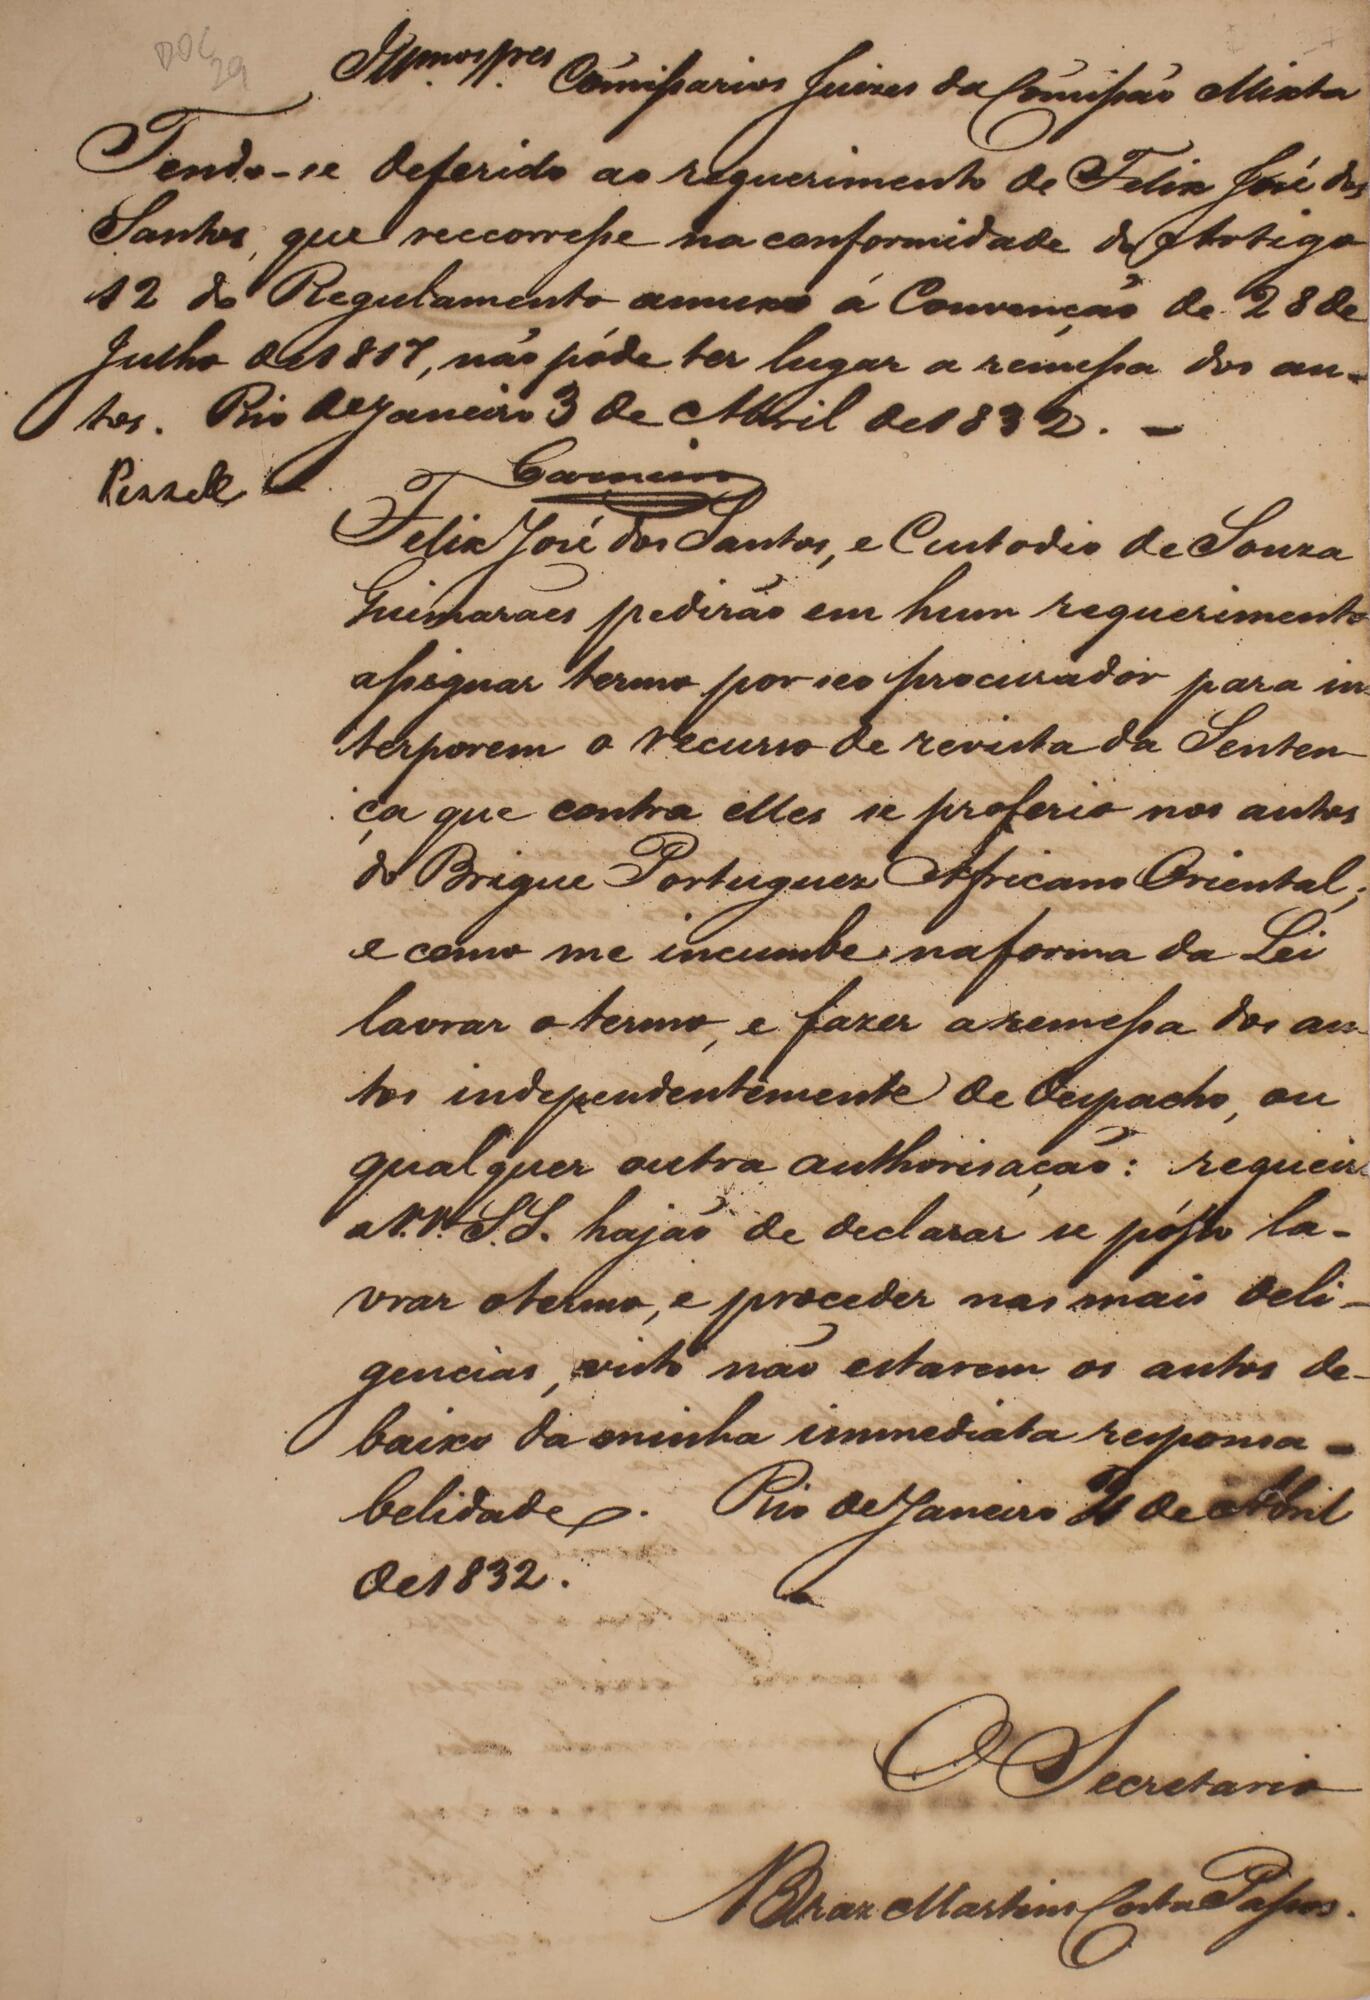 DOC 29
Illmos. Snres. Comissarios Juizes da Comissão Mixta
Tendo-se deferido ao requerimento de Felix José dos
Santos, que reccorresse na conformidade do Artigo
12 do Regulamento annexo á Convenção de 28 de
Julho de 1817, não póde ter lugar a remessa dos au-
tos. Rio de Janeiro 3 de Abril de 1832. -
Carneiro
Felix José dos Santos, e Custodio de Souza
Guimarães pedirão em hum requerimento
assignar termo por seo procurador para in-
terporem o recurso de revista da Senten-
ça que contra elles se proferio nos autos
do Brigue Portuguez Africano Oriental;
e como me incumbe na forma da Lei
lavrar o termo, e fazer a remessa dos au-
tos independentemente de despacho, ou
qualquer outra authorisação: requeiro
a V.V. S.S. hajão de declarar se pósso la-
vrar o termo, e proceder nas mais deli-
gencias, visto não estarem os autos de-
baixo da minha immediata responsa-
belidade. Rio de Janeiro de Abril
de 1832.
O Secretario
Braz Martins Costa Passos.